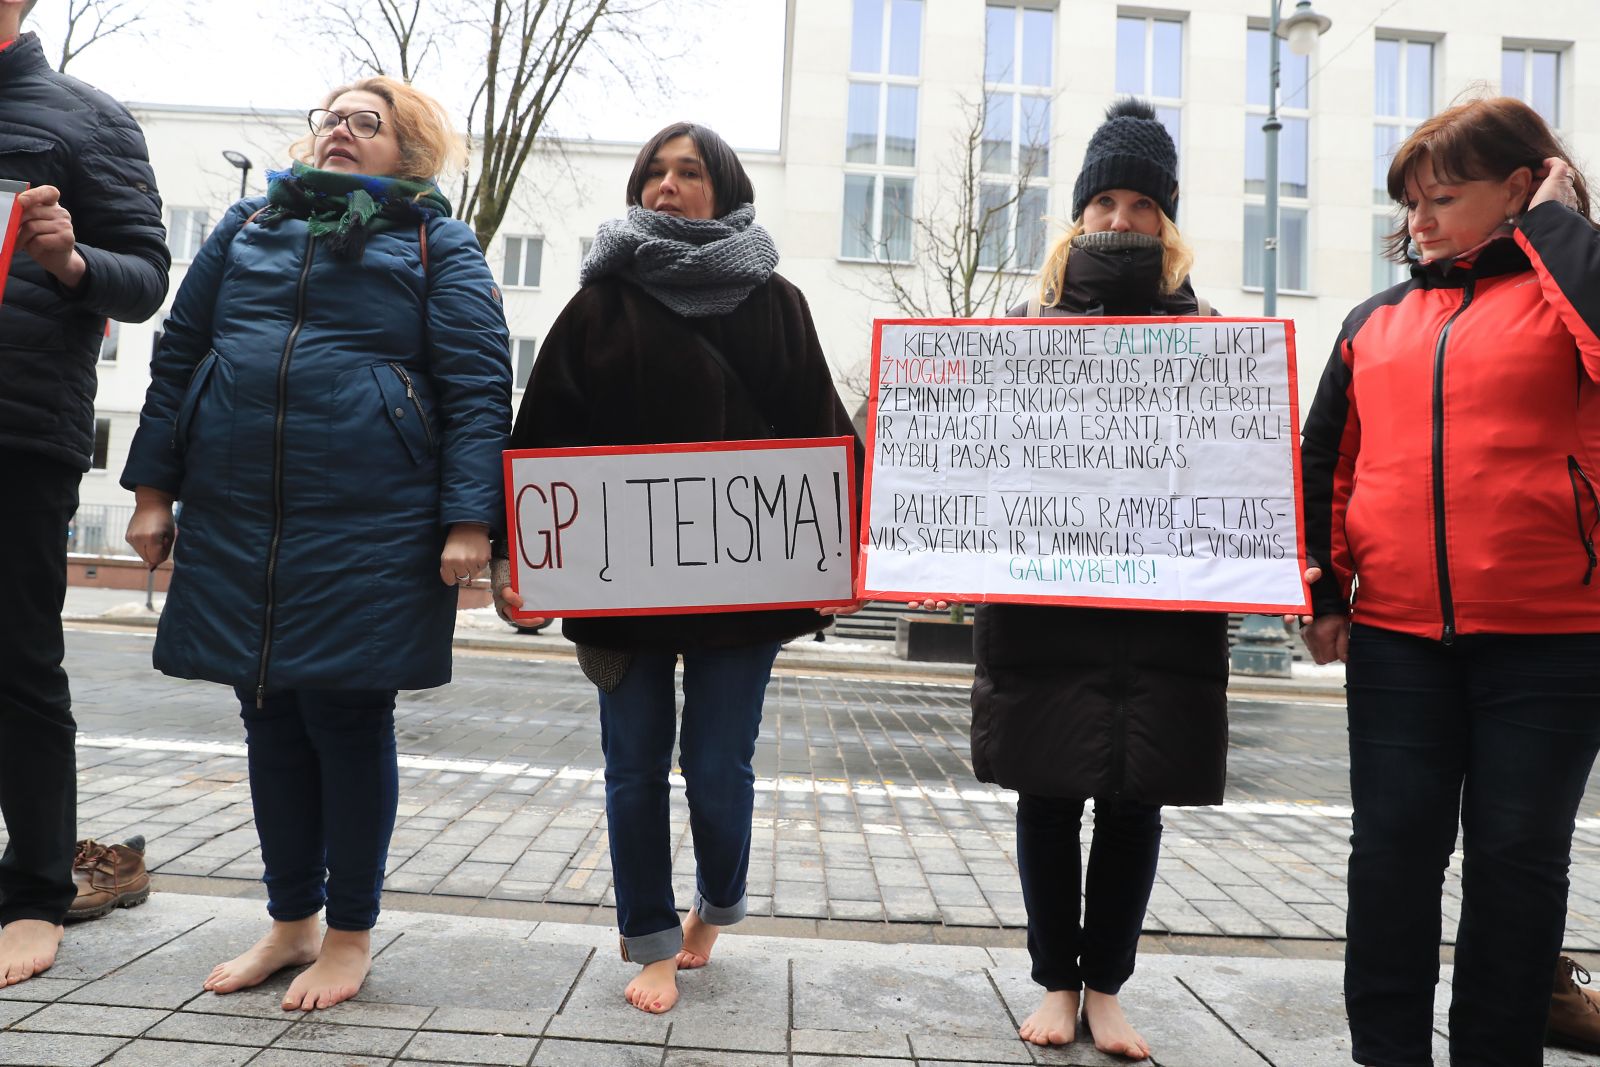 GP Į TEISMĄ!
KIEKVIENAS TURIME GALIMYBĘ LIKTI
ŽMOGUMI. BE SEGREGACIJOS, PATYČIŲ IR
ŽEMINIMO. RENKUOSI SUPRASTI, GERBTI
IR ATJAUSTI ŠALIA ESANTĮ. TAM GALI-
MYBIŲ PASAS NEREIKALINGAS.
PALIKITE VAIKUS RAMYBĖJE, LAIS-
VUS, SVEIKUS IR LAIMINGUS - SU VISOMIS
GALIMYBĖMIS!